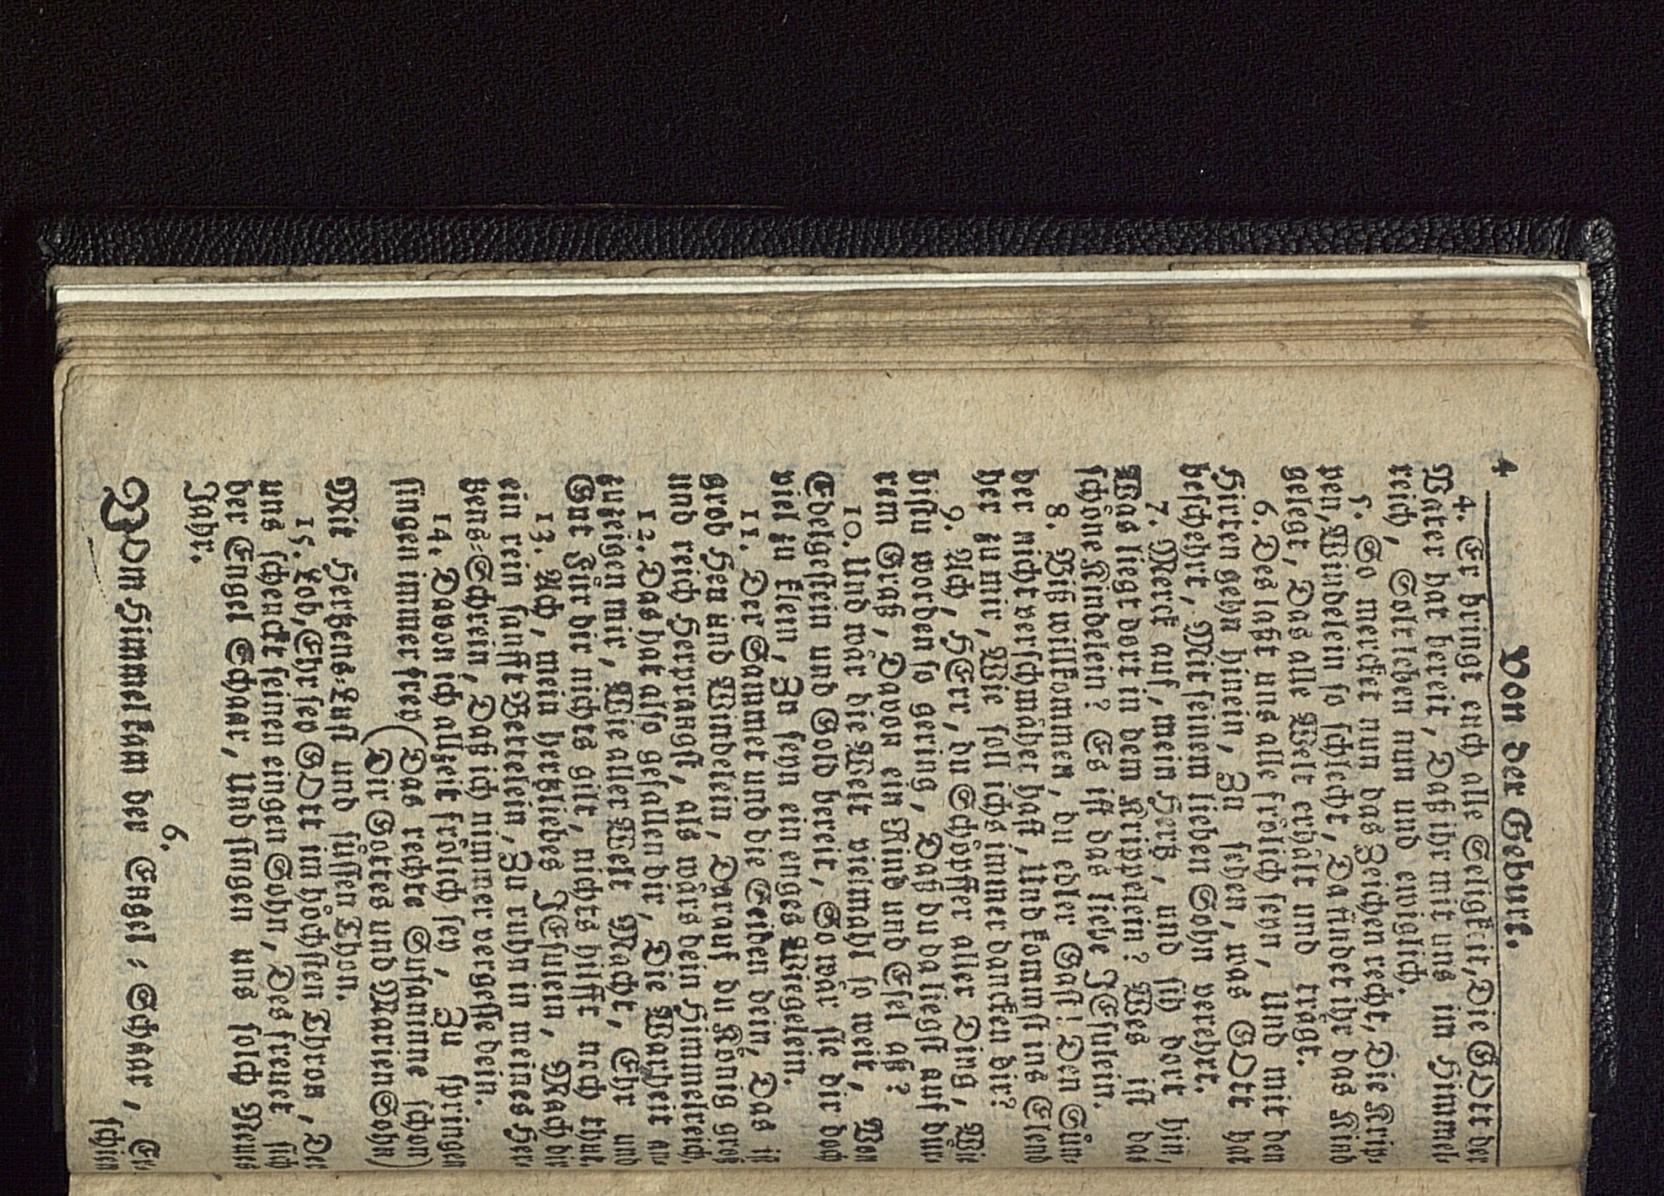 4
Von der Geburt.
4. Er bringt euch alle Seligkeit, Die GOtt der
Vater hat bereit, Daß ihr mit uns im Himmel-
reich, Solt leben nun und ewiglich.
5. So mercket nun das Zeichen recht, Die Krip-
pen, Windelein so schlecht, Da findet ihr das Kind
gelegt, Das alle Welt erhält und tragt.
6. Des laßt uns alle frölich seyn, Und mit den
Hirten gehn hinein, Zu sehen, was GOtt hat
beschehrt, Mit seinem lieben Sohn verehrt.
7. Merck auf, mein Hertz, und sih dort hin,
Was liegt dort in dem Krippelein? Wes ist das
schöne Kindelein? Es ist das liebe JEsulein.
8. Biß willkommen, du edler Gast! Den Sün-
der nicht verschmähet hast, Und kommst ins Elend
her zu mir, Wie soll ichs immer dancken dir?
9. Ach, HErr, du Schöpffer aller Ding, Wie
bistu worden so gering, Daß du da liegst auf dür-
rem Graß, Davon ein Rind und Esel aß?
10. Und wär die Welt vielmahl so weit, Von
Edelgestein und Gold bereit, So wär sie dir doch
viel zu klein, Zu seyn ein enges Wiegelein.
11. Der Sammet und die Seiden dein, Das ist
grob Heu und Windelein, Darauf du König groß
und reich Herprangst, als wärs dein Himmelreich.
12. Das hat also gefallen dir, Die Warheit an-
zuzeigen mir, Wie aller Welt Macht, Ehr und
Gut Für dir nichts gilt, nichts hilfft noch thut.
13. Ach, mein hertzliebes JEsulein, Mach dir
ein rein sanfft Bettelein, Zu ruhn in meines Her-
tzens-Schrein, Daß ich nimmer vergesse dein.
14. Davon ich allzeit frölich sey, Zu springen
singen immer frey (Das rechte Susaninne schon)
(Dir Gottes und Marien Sohn)
Mit Hertzens-Lust und süssen Thon.
15. Lob, Ehr sey GOtt im höchsten Thron, Der
uns schenckt seinen eingen Sohn, Des freuet sich
der Engel Schaar, Und singen uns solch Neues
Jahr.
6.
Vom Himmel kam der Engel-Schaar, Er-
schien